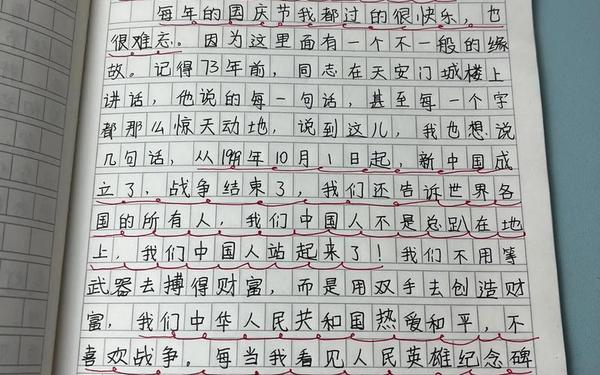 每年的国庆节我都过的很快乐，也
很难忘。因为这里面有一个不一般的缘
故。记得73年前，同志在天安门城楼上
讲话，他说的每一句话，甚至每一个字
都那么惊天动地，说到这儿，我也想说
几句话，从1949年10月1日起，新中国成
立了，战争结束了，我们还告诉世界各
国的所有人，我们中国人不是总趴在地
上，我们中国人站起来了！我们不用等
武器去搏得财富，而是用双手去创造财
富，我们中华人民共和国热爱和平，不
喜欢战争。每当我看见人民英雄纪念碑